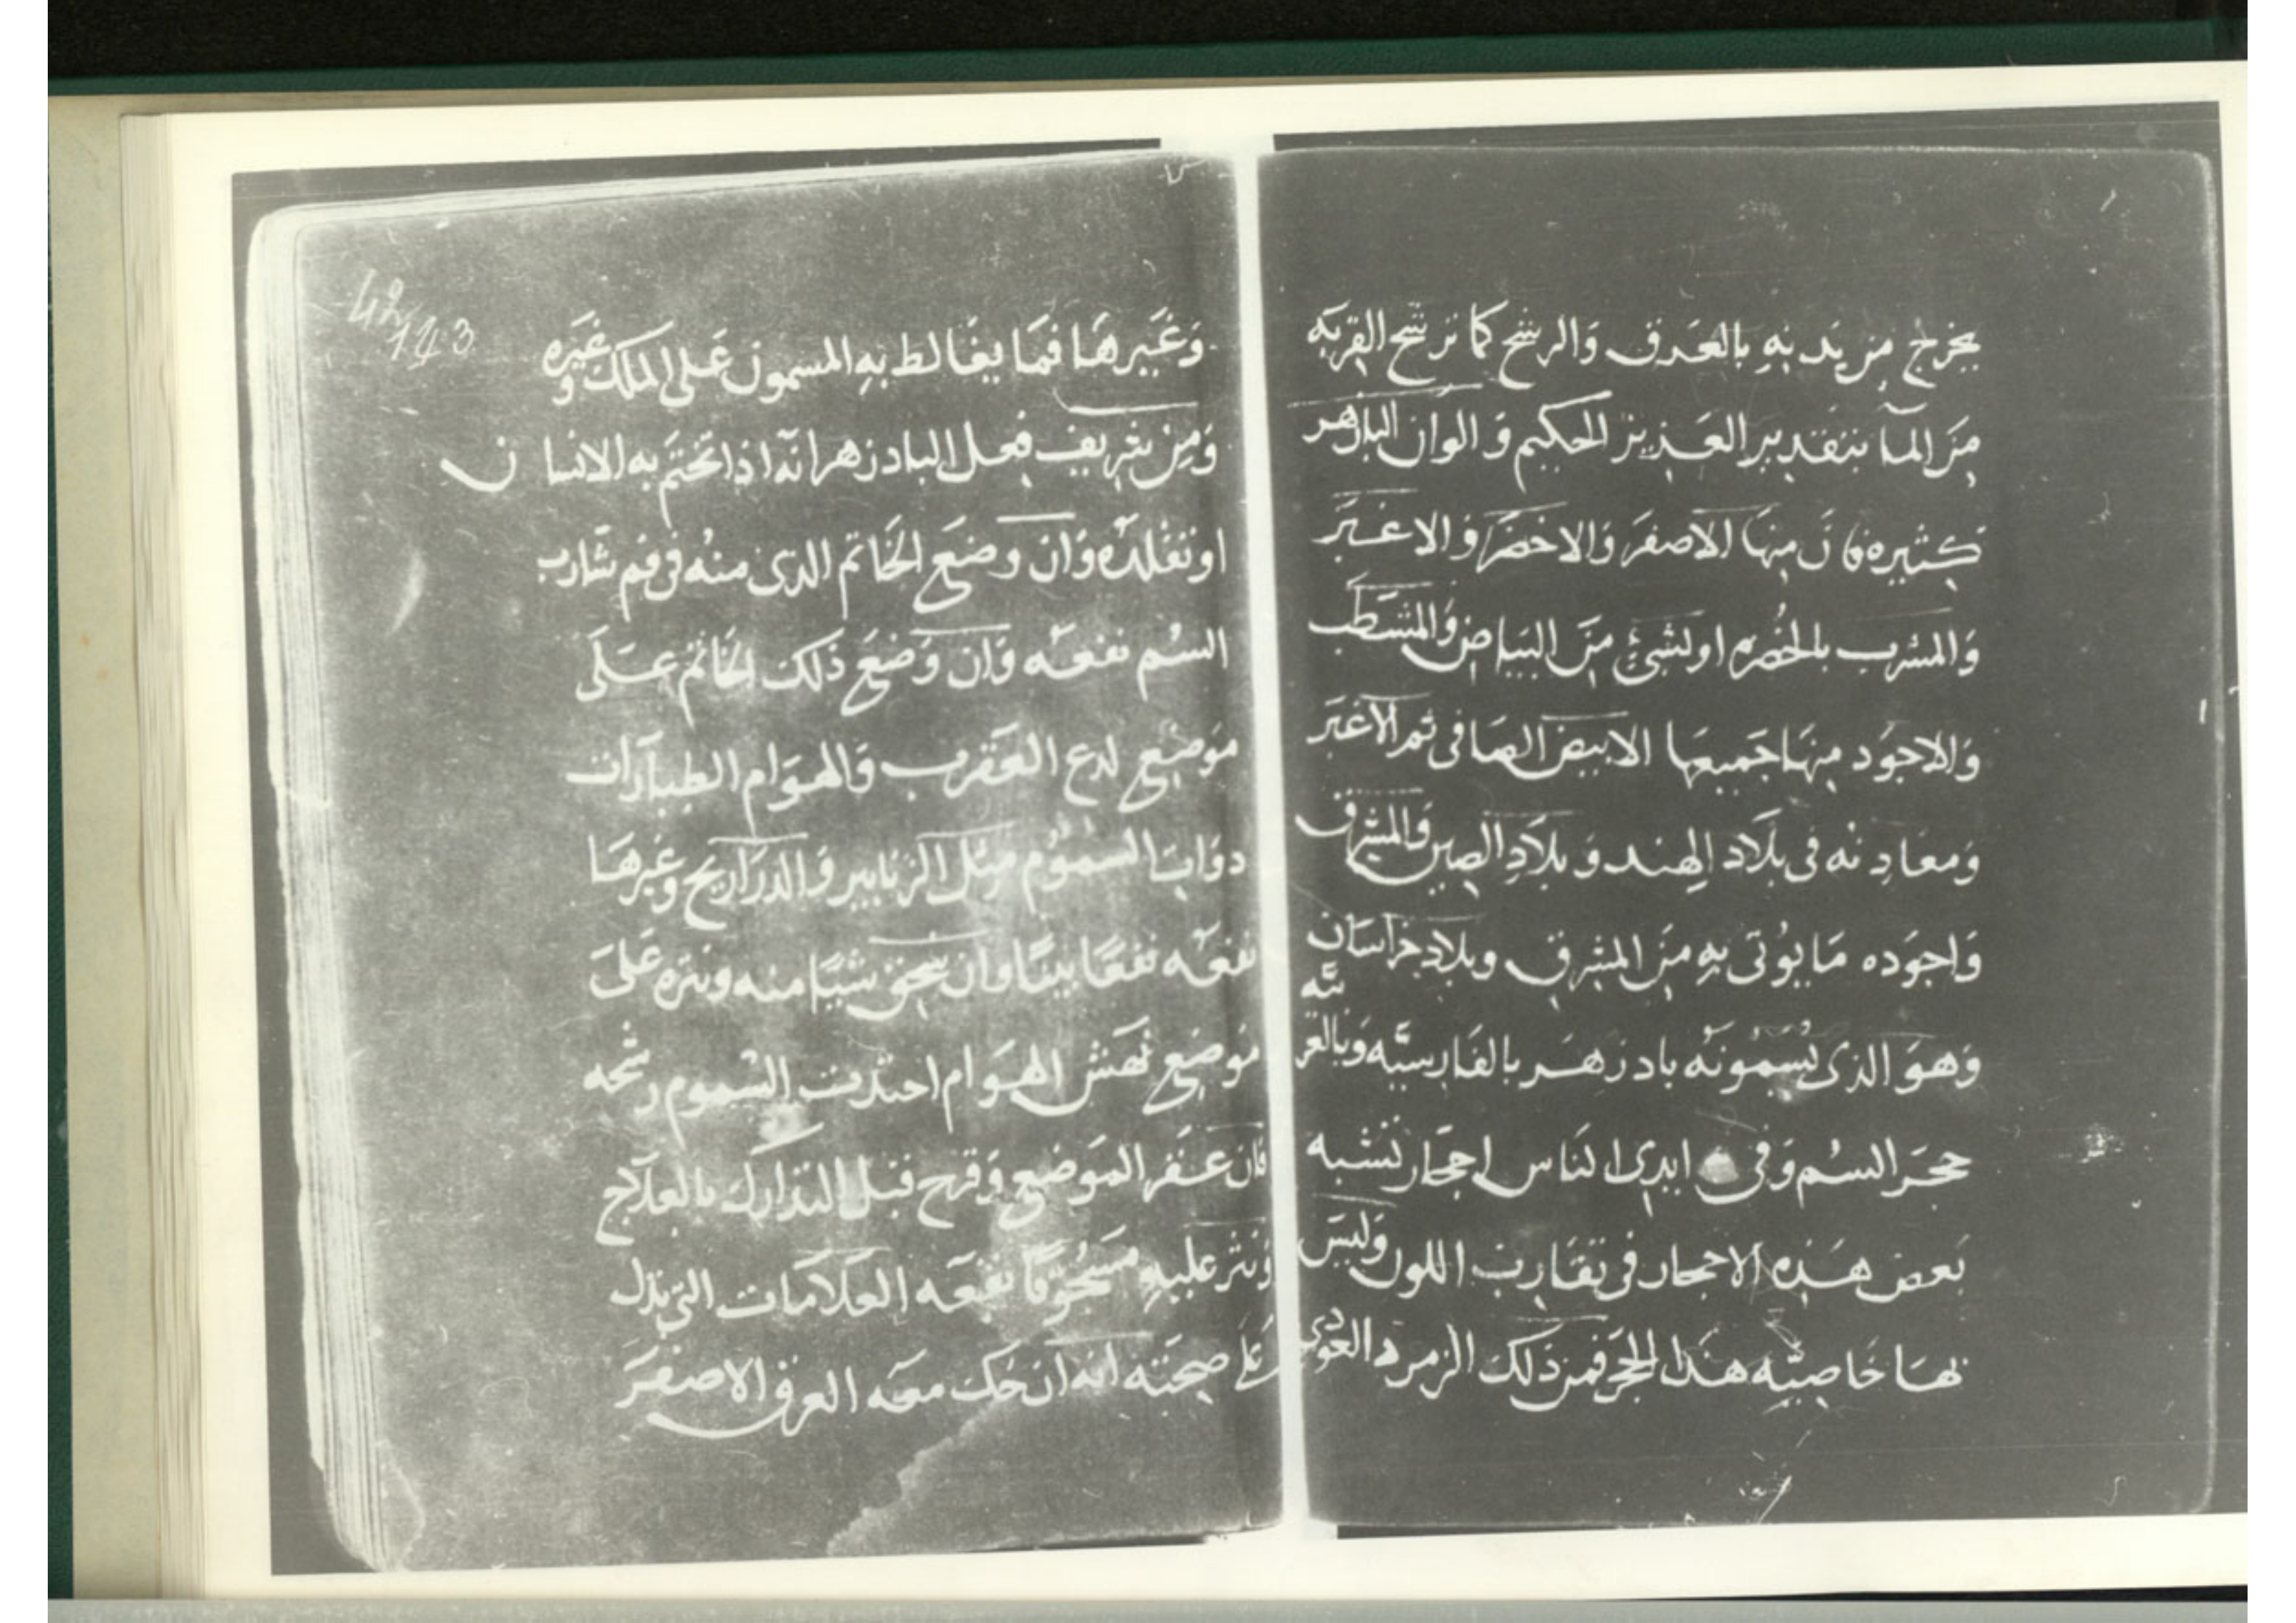 يخرج من بدنه بالعرق والرشح كما ترشح القربه
من المآ بتقدير العزيز الحكيم والوان البادزهر
كثيره فان منها الاصفر والاخضر والاغبر
والمشرب بالخضره او لشئ من البياض والمشطب
والاجود منها جميعها الابيض الصافى ثم الاغبر
ومعادنه فى بلاد الهند وبلاد الصين والمشرق
واجوده ما يوتى به من المشرق وبلاد خراسان
وهو الذى يسمونه بادزهر بالفارسيه وبالعربيه
حجر السم وفى ايدى الناس احجار تشبه
بعض هذه الاحجار فى تقارب اللون وليس
لها خاصيه هذا الحجر فمن ذلك الزمرد
42
143
وغيرها فما يغالط به المسمون على الملك وغيره
ومن شريف فعل البادزهر انه اذا تختم به الانسان
او تقلده وان وضع الخاتم الذى منه فى فم شارب
السم نفعه وان وضع ذلك الخاتم على
موضع لدع العقرب والهوام الطيارات
دواب السموم مثل الزنابير والذراريح وغيرها
نفعه نفعا بينا وان سحق شيا منه ونثره على
موضع نهش الهوام اجتذبت السموم رشحه
فان عفر الموضع وقرح قبل التدارك بالعلاج
ونثر عليه مسحوقا نفعه العلامات التى تدل
على صحته انه ان حك معه العرق الاصفر